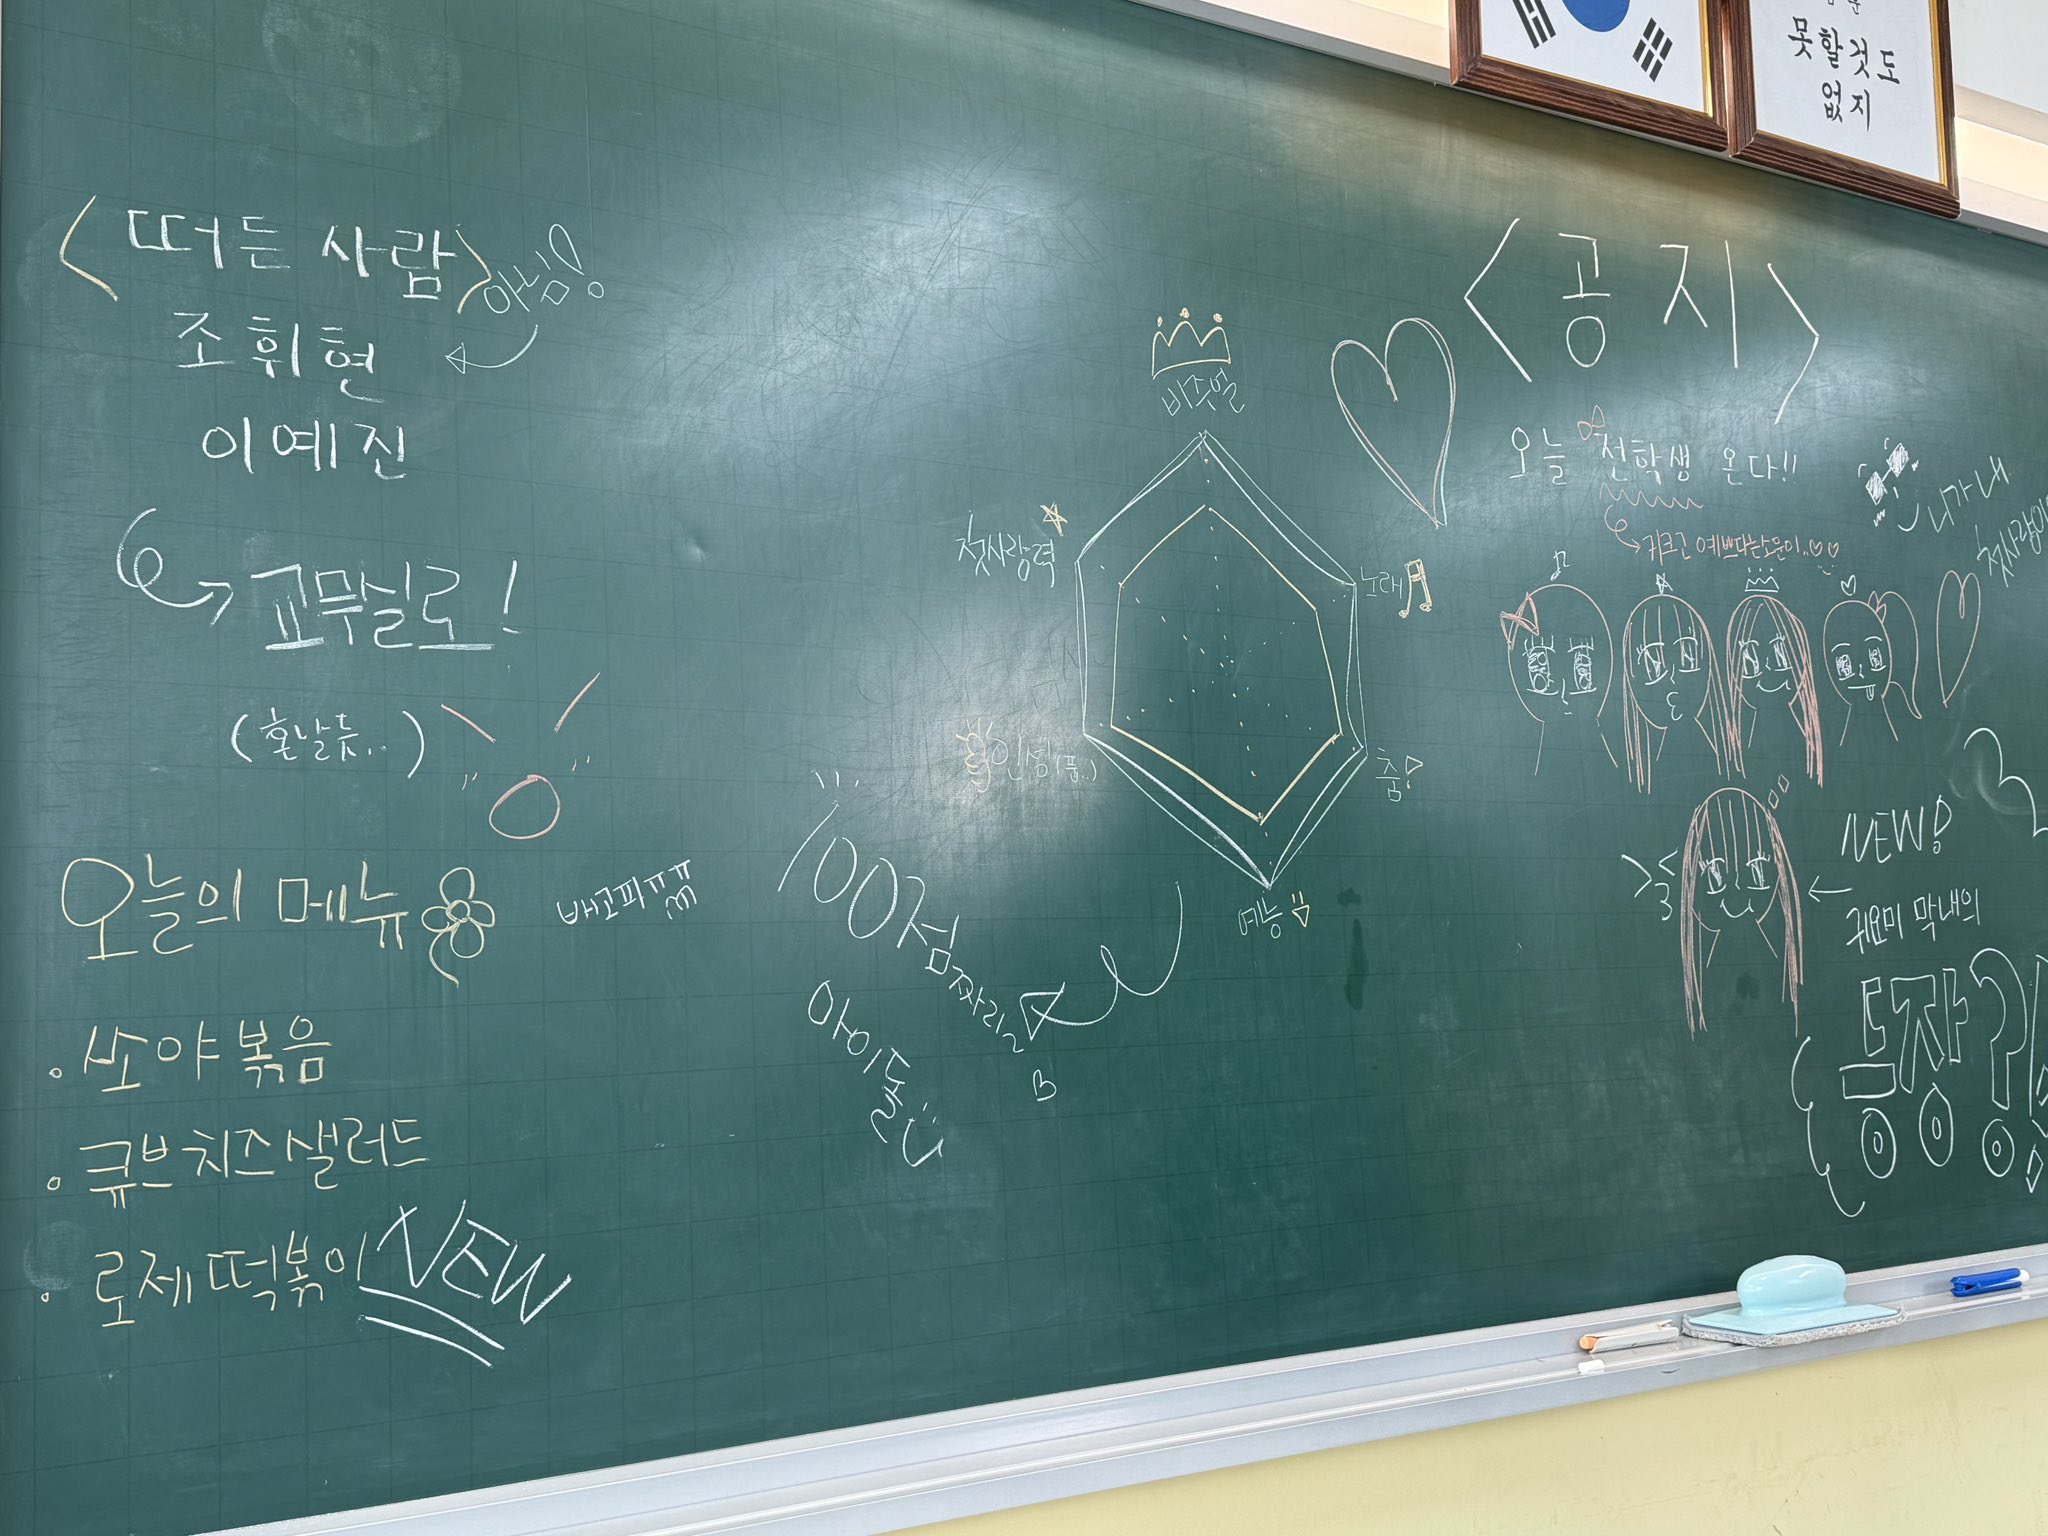 <떠든 사람>
아님!
조휘현
이예진
교무실로!
(혼날듯..)
오늘의 메뉴
배고파ㅠㅠ
· 쏘야볶음
· 큐브치즈샐러드
· 로제떡볶이 NEW
비주얼
첫사랑력
노래
인성
춤!
예능
100점짜리
아이돌
<공지>
오늘 전학생 온다!!
키크고 예쁘다는 소문이..♡♡
나가 내
첫사랑이
NEW!
귀요미 막내의
등장?!
못할것도
없지